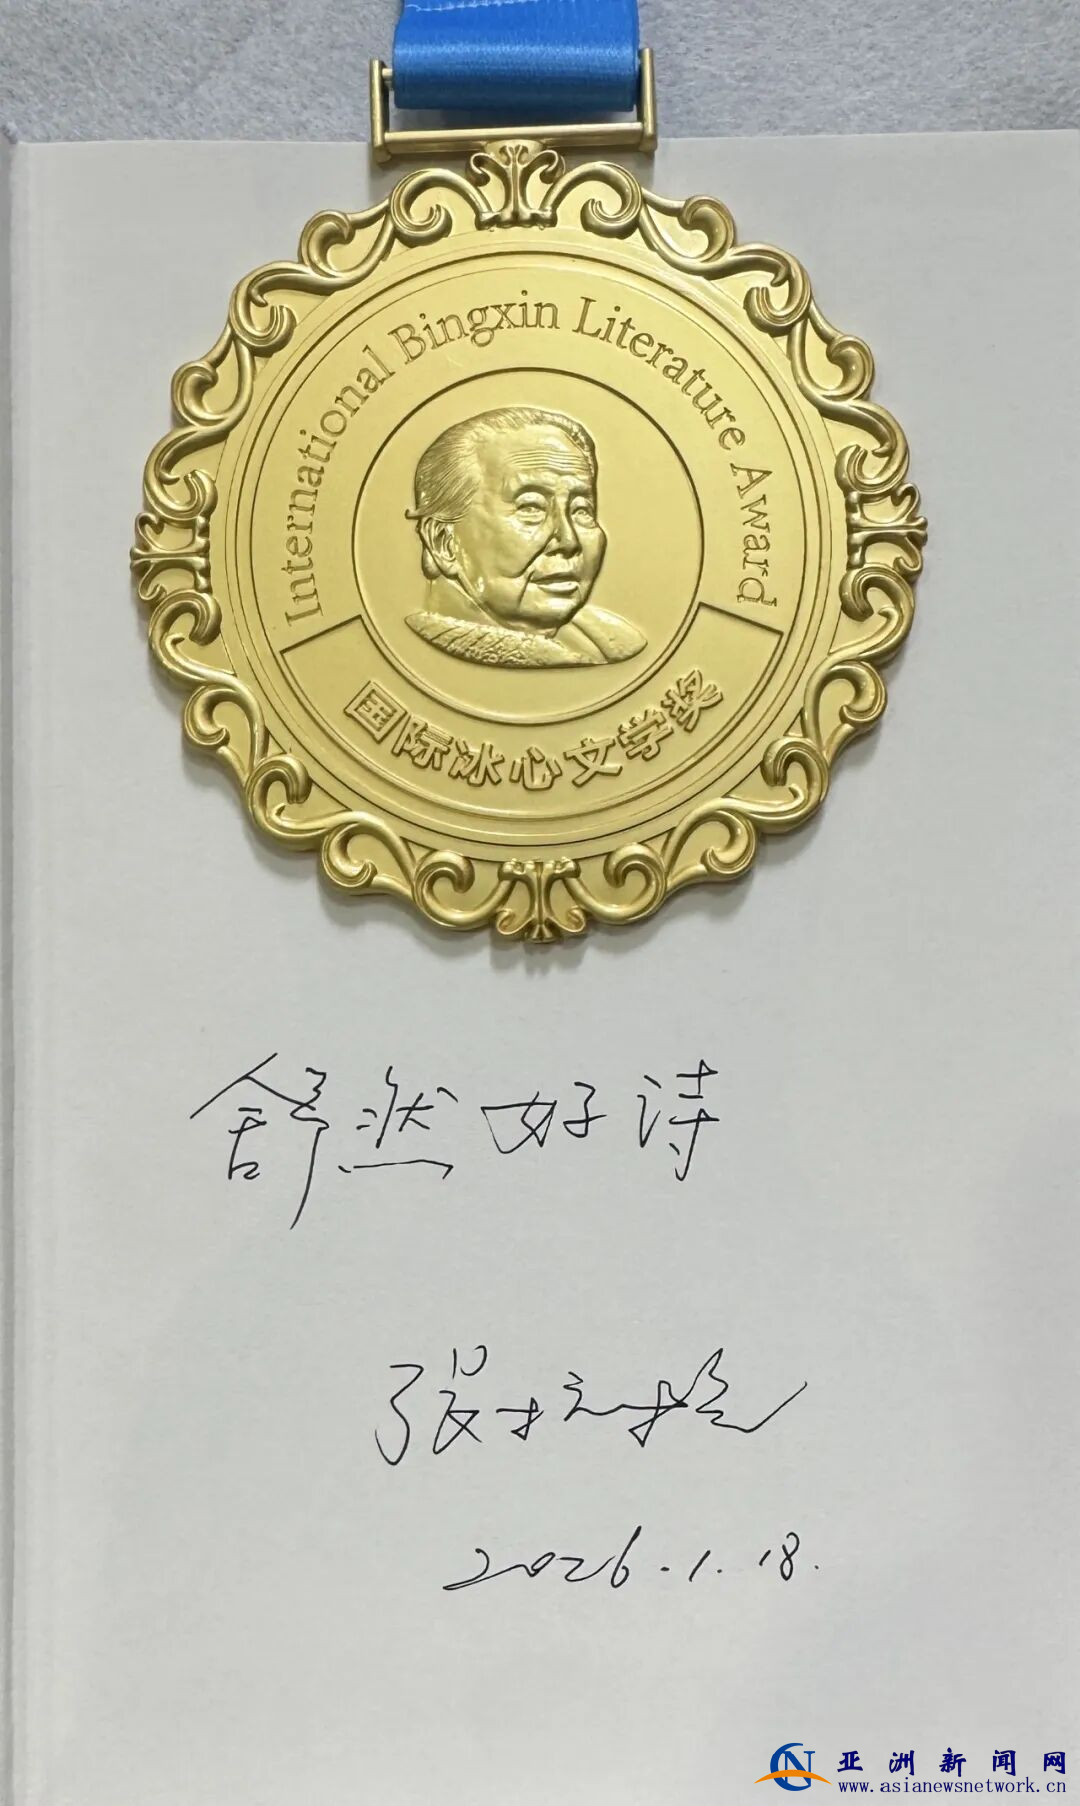 International Bingxin Literature Award
国际冰心文学奖
舒然好诗
张抗抗
2026.1.18.
亚洲新闻网
www.asianewsnetwork.cn